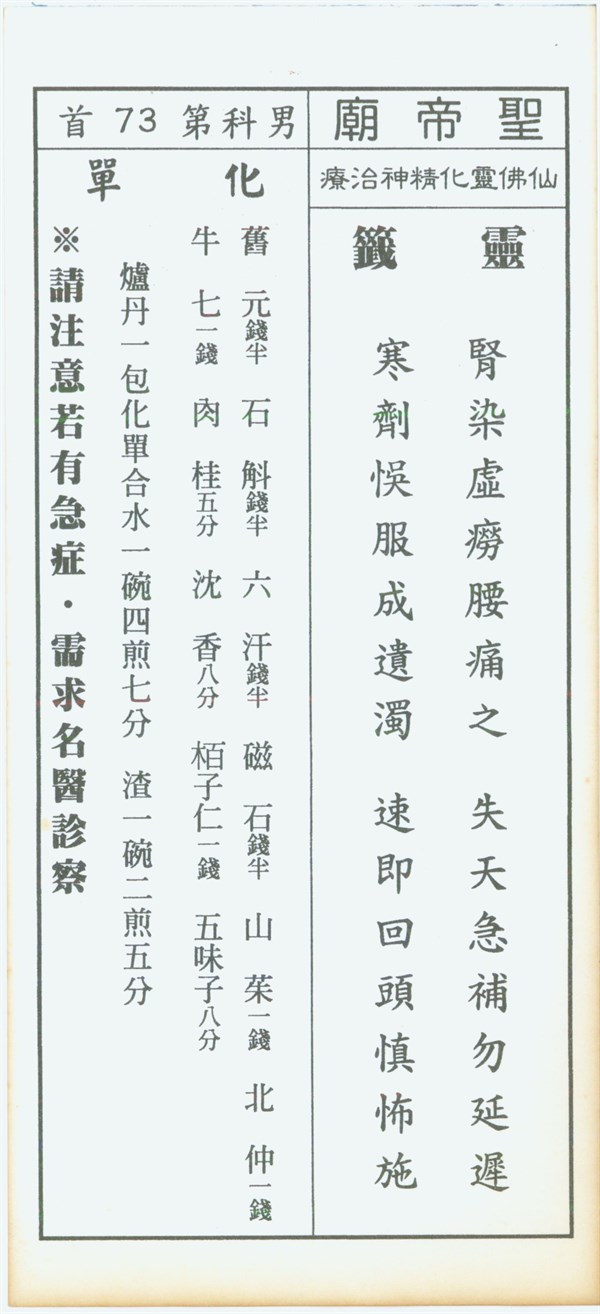 聖帝廟
仙佛靈化精神治療
靈籤
腎染虛癆腰痛之　失天急補勿延遲
寒劑悞服成遺濁　速即回頭慎怖施
男科第73首
化單
舊元錢半　石斛錢半　六汗錢半　磁石錢半　山茱一錢　北仲一錢
牛七一錢　肉桂五分　沈香八分　栢子仁一錢　五味子八分
爐丹一包化單合水一碗四煎七分　渣一碗二煎五分
※請注意若有急症・需求名醫診察